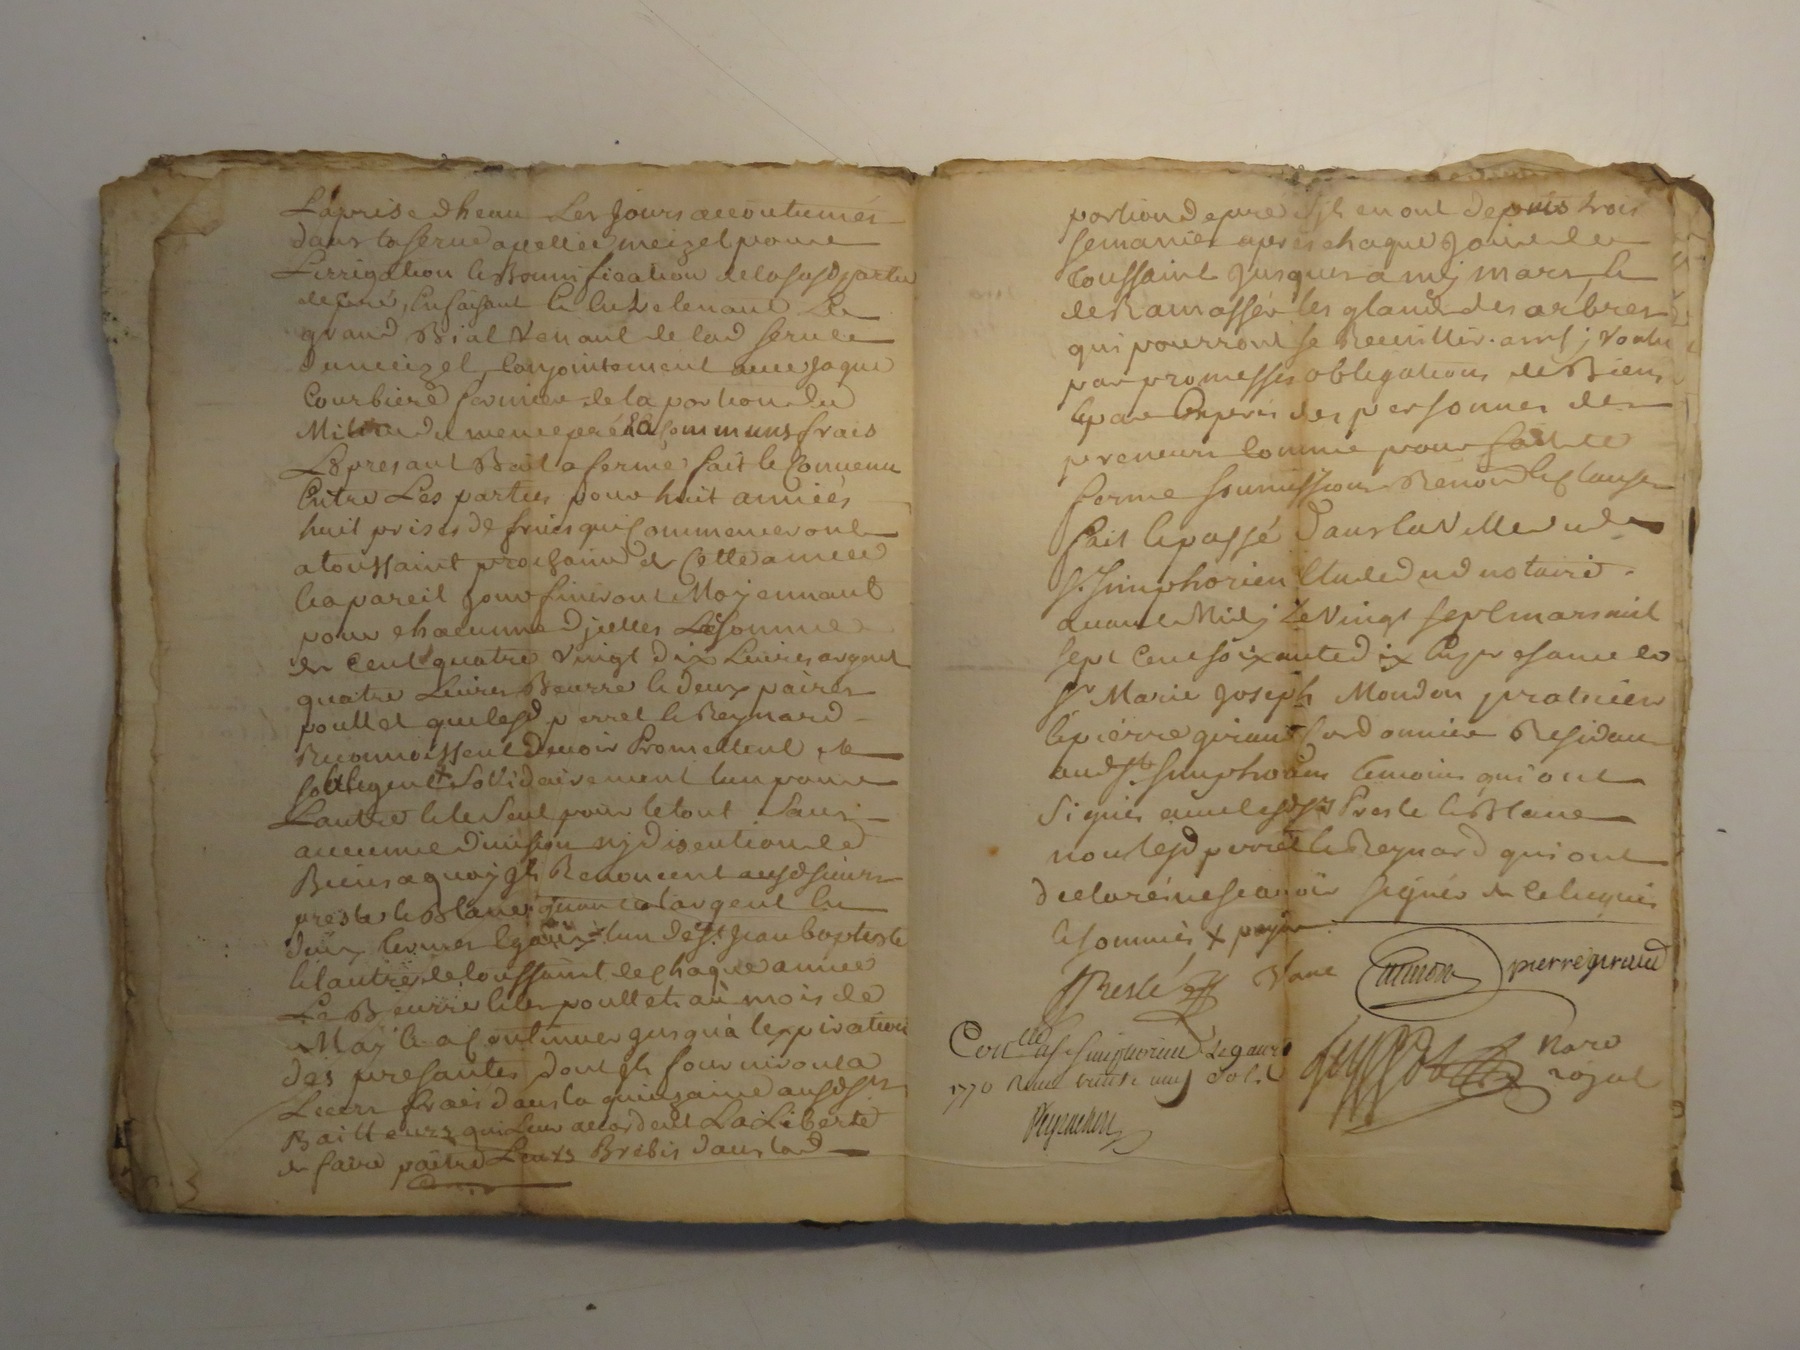 La prise d'heau Les Jours accoutumés
dans la serve apellée meizel pour
L'irrigation & Bonnification de la susd partie
de pré, en faisant & entretenant Le
grand Bial Venant de lad serve
du meizel, Conjointement avec Jaque
Courbiere fermier de la portion du
Milieu du meme pré a communs frais
Le presant Bail a ferme fait & Convenu
Entre Les parties pour huit années
huit prises de fruits qui Commenceront
a toussaint prochaine de Cette année
& a pareil jour finiront Moyennant
pour chacunne d'jcelles La somme
de Cent quatre Vingt dix Livres argent
quatre Livres Beurre & deux paires
poullet que lesd perret & Reynard
Reconnoissent devoir Promettent &
s'obligent Solidairement l'un pour
L'autre & le seul pour le tout sans
aucunne division ny discution de
Biens a quoy jls Renoncent ausd sieurs
presle & Blanc quant a l'argent en
deux termes egaux l'un de St Jean baptiste
& l'autre de toussaint de chaque année
Le Beurre & les poullets au mois de
May & a Continuer jusqu'à l'expiration
des presantes dont jls fourniront a
Leurs frais dans la quinzaine ausd srs
Bailleurs qui Leur accordent La Liberté
de faire paitre Leurs Brebis dans lad
portion de pré s'jls en ont depuis trois
semaines apres chaque foire de
toussaint jusques a my mars, &
de Ramasser les glands des arbres
qui pourront se Recuillir. ainsj Voulu
par promesses obligations de Biens
& par Exprès des personnes des
preneurs comme pour fait de
ferme soumissions Renond & clauses
fait & passé dans la Ville de
St. Simphorien Etude dud notaire.
avant Midj Le Vingt sept mars mil
sept Cent soixante dix En presance de
Sr Marie Joseph Moudon praticien
& pierre giraud Cordonnier Residant
aud St. Simphorien temoins qui ont
signés avec lesd srs Presle & Blanc
non lesd perret & Reynard qui ont
declaré ne sçavoir signer de ce Enquis
& sommés
Presle
pierre giraud
Conllé a St Simphorien Le
1770 Reçu trente
royal